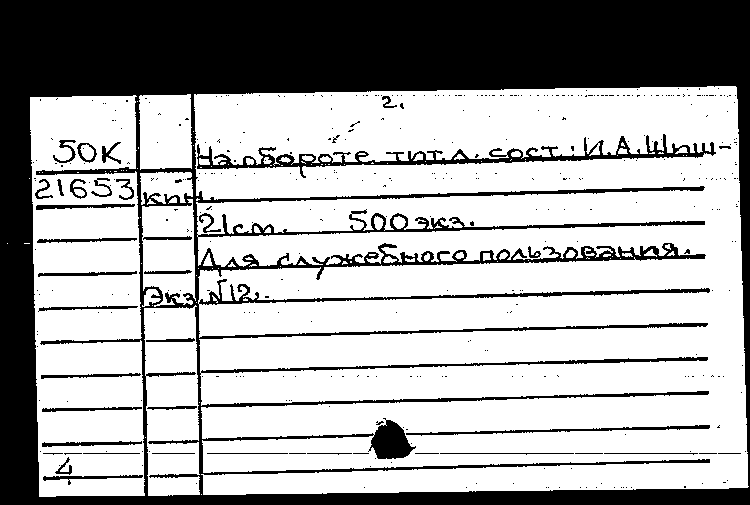 2.
50К На обороте тит.л. сост.: И.А.Шпш-
21653 кпн.
21см. 500 экз.
Для служебного пользования.
Экз. №12.
4